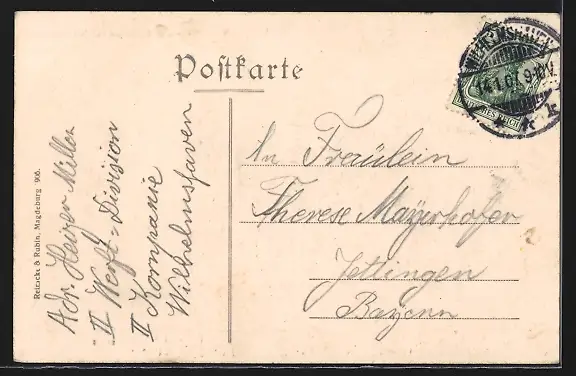 Postkarte
WILHELMSHAVEN
14.1.07. 9-10 V.
DEUTSCHES REICH
* k
An Fräulein
Therese Mayerhofer
Jettingen
Bayern
Adr. Heizer Miller
II Werft-Division
II Kompanie
Wilhelmshaven
Reinicke & Rubin, Magdeburg 906.